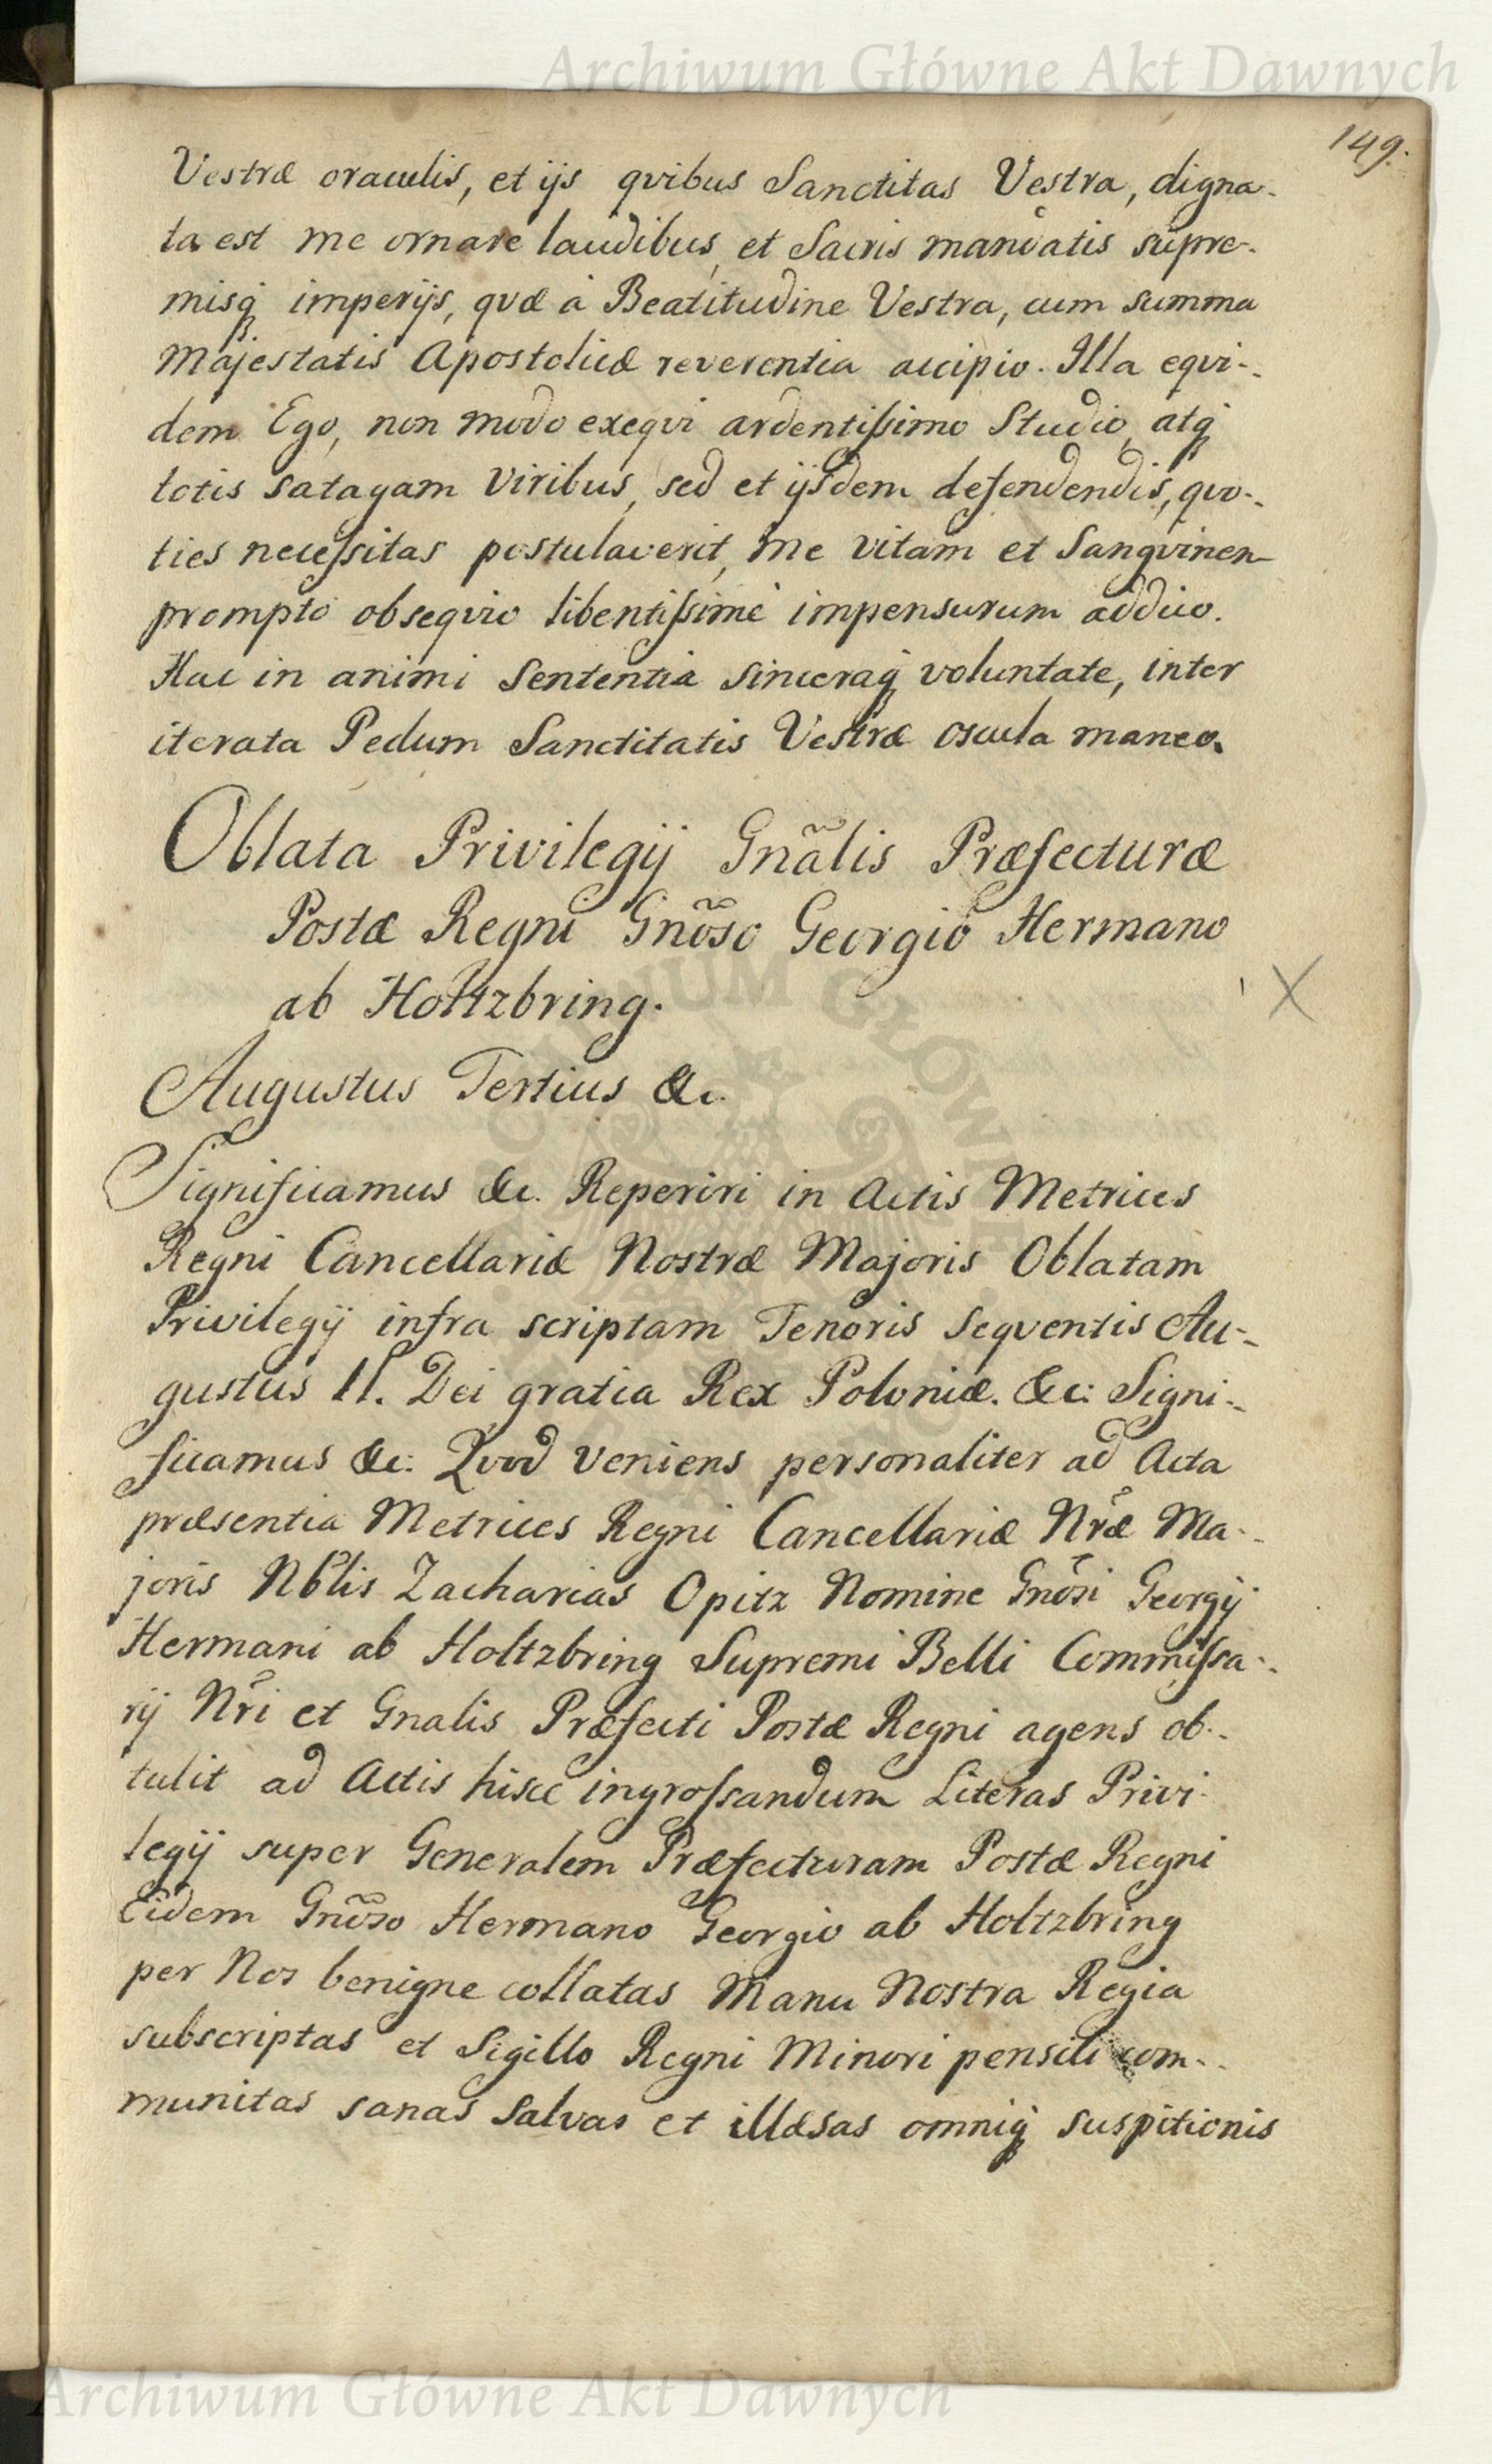 Archiwum Główne Akt Dawnych
149.
Vestræ oraculis, et ijs qvibus Sanctitas Vestra, digna-
ta est me ornare laudibus, et Sacris mandatis supre-
misq́ imperijs, qvæ à Beatitudine Vestra, cum summa
Majestatis Apostolicæ reverentia accipio. Illa eqvi-
dem Ego, non modo exeqvi ardentiſsimo Studio, atq́
totis satagam viribus, sed et ijsdem defendendis, qvo-
ties neceſsitas postulaverit, me vitam et Sangvinem
prompto obseqvio libentiſsimè impensurum addico.
Hac in animi Sententia sinceraq́ voluntate, inter
iterata Pedum Sanctitatis Vestræ oscula maneo.
Oblata Privilegij Gñalis Præfecturæ
Postæ Regni Gnõso Georgio Hermano
ab Holtzbring.
X
Augustus Tertius &c.
Significamus &c. Reperiri in Actis Metrices
Regni Cancellariæ Nostræ Majoris Oblatam
Privilegij infra scriptam Tenoris Seqventis Au-
gustus II. Dei gratia Rex Poloniæ. &c: Signi-
ficamus &c: Qvod veniens personaliter ad Acta
præsentia Metrices Regni Cancellariæ Nræ Ma-
joris Nblis Zacharias Opitz Nomine Gnõsi Georgij
Hermani ab Holtzbring Supremi Belli Commiſsa-
rij Nri et Gnalis Præfecti Postæ Regni agens ob-
tulit ad Actis hisce ingroſsandum Literas Privi-
legij super Generalem Præfecturam Postæ Regni
Eidem Gnõso Hermano Georgio ab Holtzbring
per Nos benigne collatas Manu Nostra Regia
subscriptas et Sigillo Regni Minori pensili com-
munitas sanas Salvas et illæsas omniq́ suspitionis
Archiwum Główne Akt Dawnych